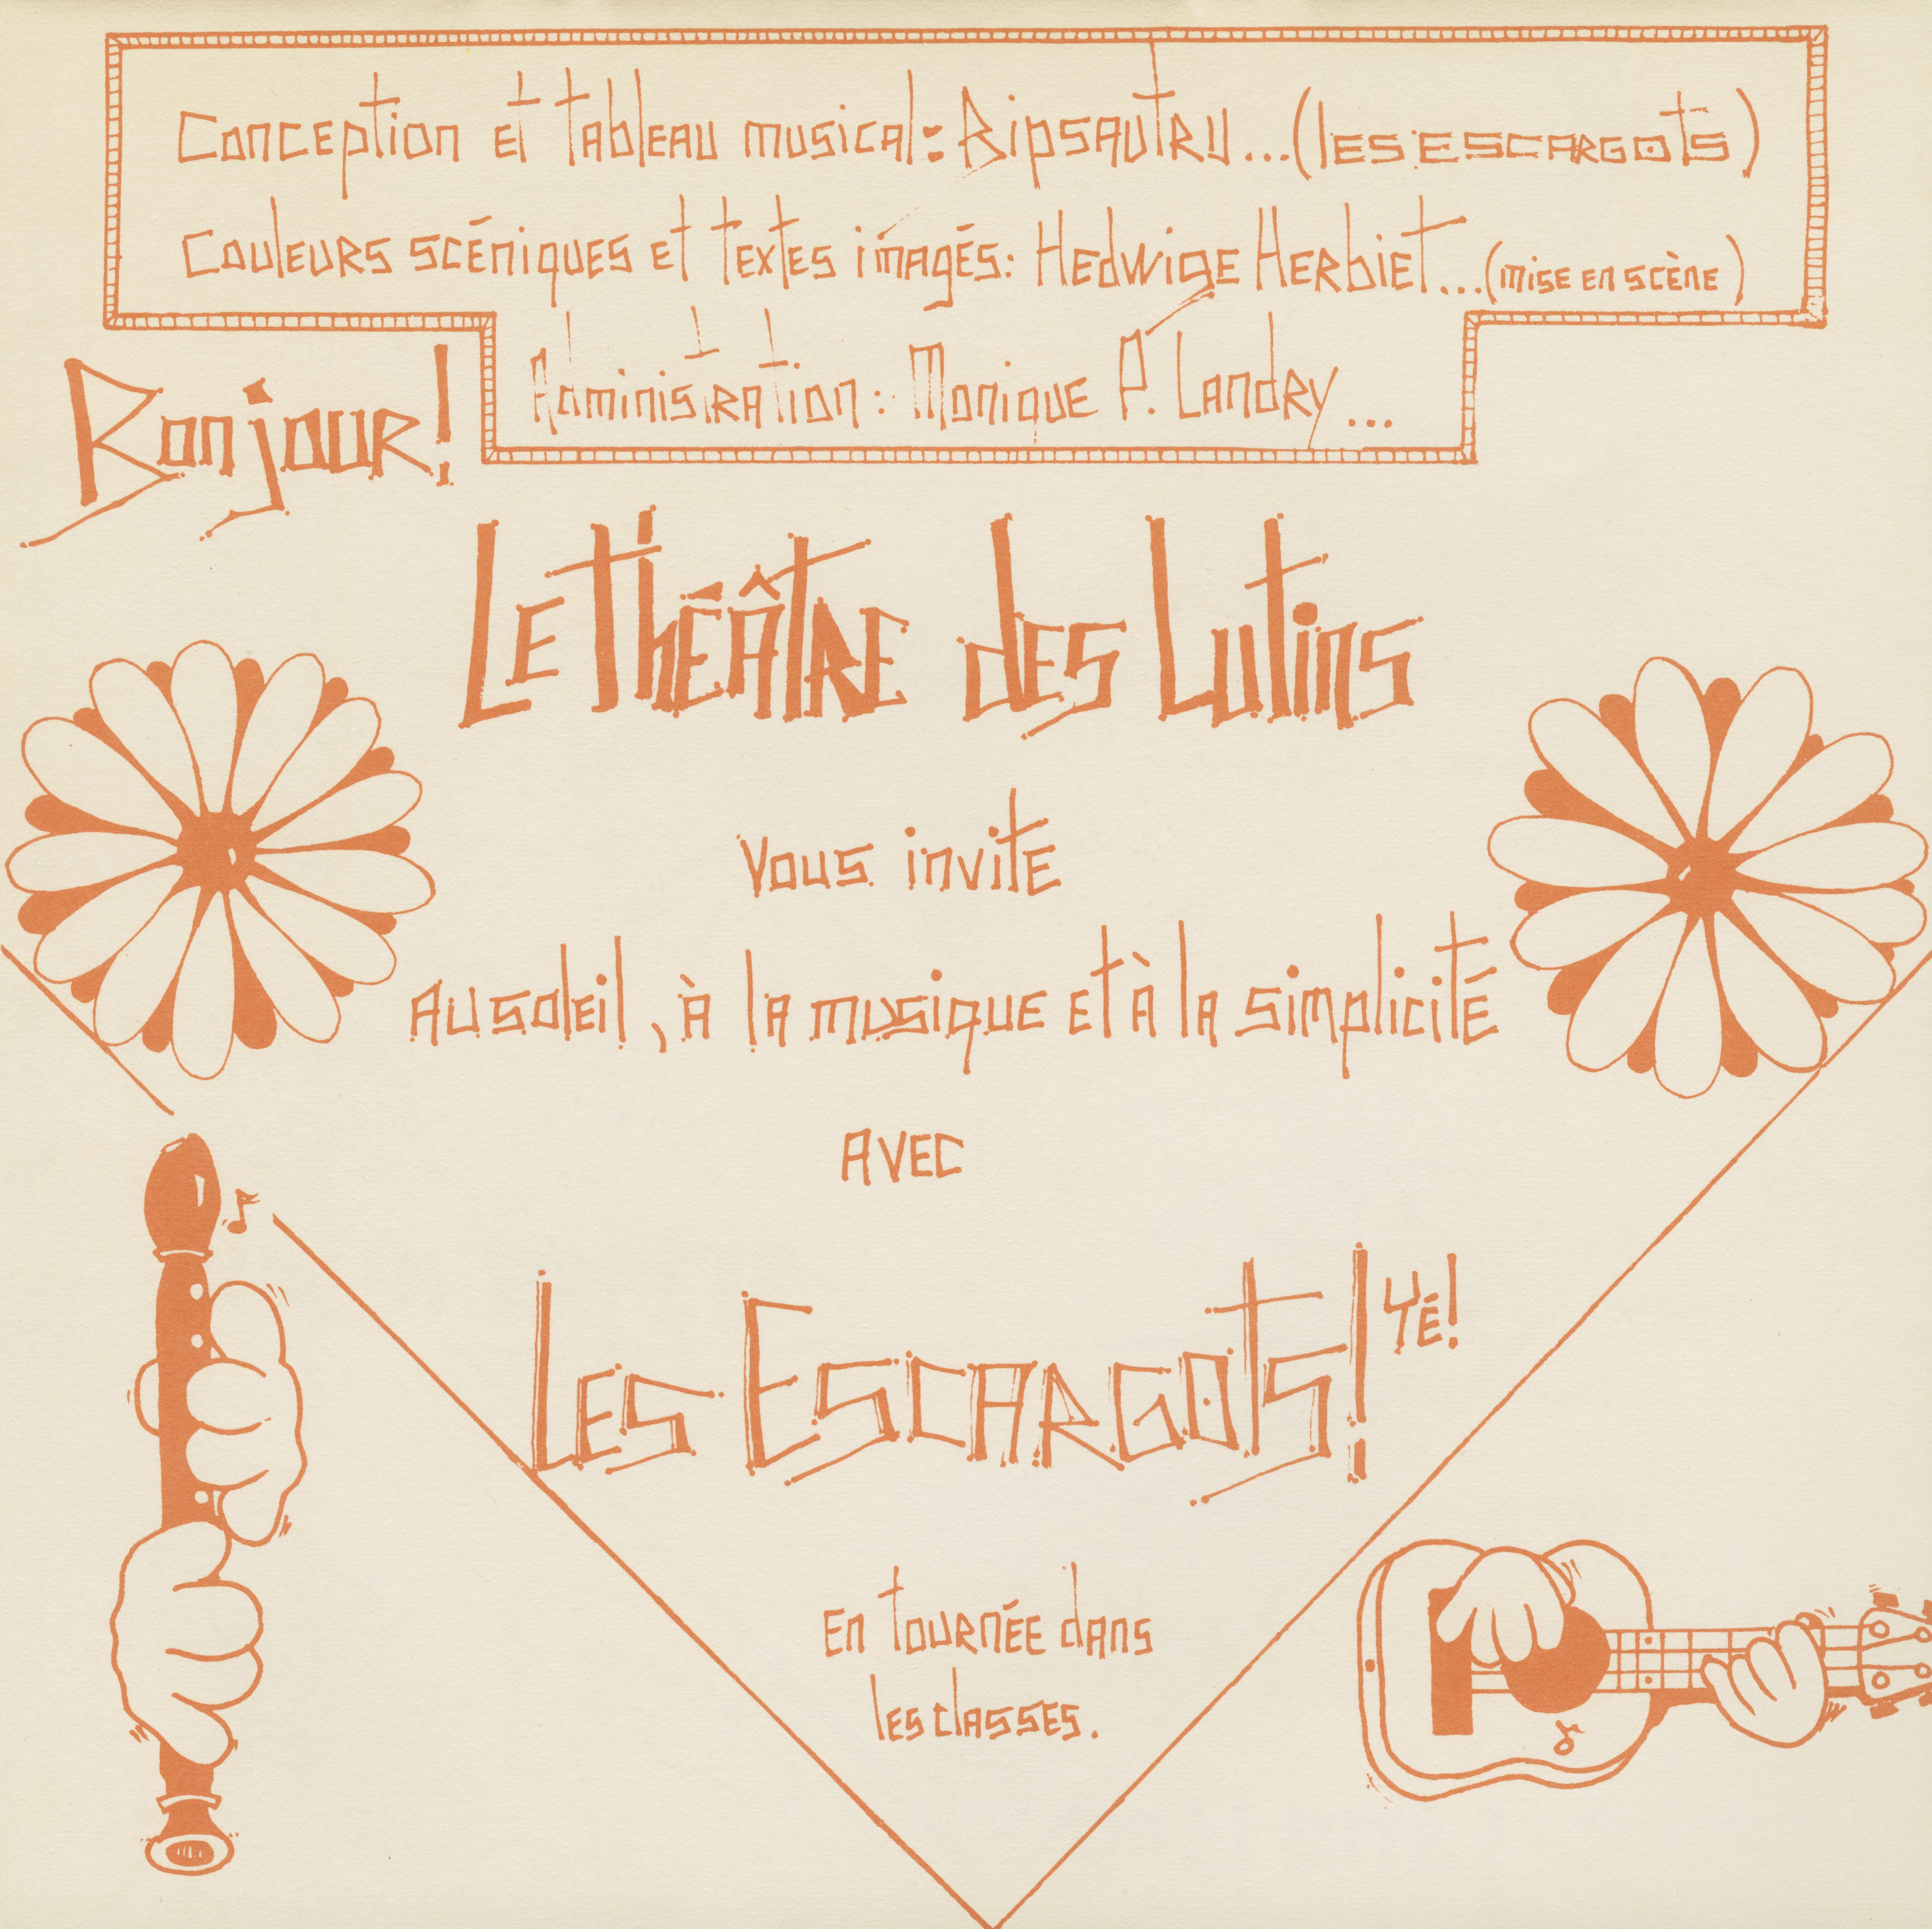 Conception et tableau musical: Ripsautru...(les escargots)
Couleurs scéniques et textes imagés: Hedwige Herbiet...(mise en scène)
Administration: Monique P. Landry...
Bonjour!
Le théâtre des Lutins
vous invite
au soleil, à la musique et à la simplicité
avec
Les Escargots! Yé!
En tournée dans
les classes.